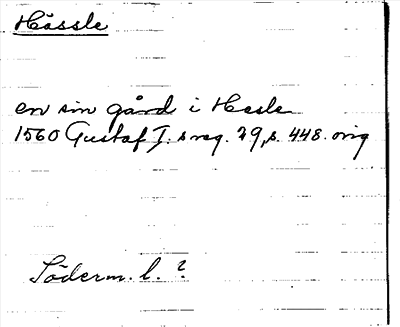 Hässle
en sin gård i Hesle
1560 Gustaf I:s reg. 29, s. 448. orig
Söderm. l. ?